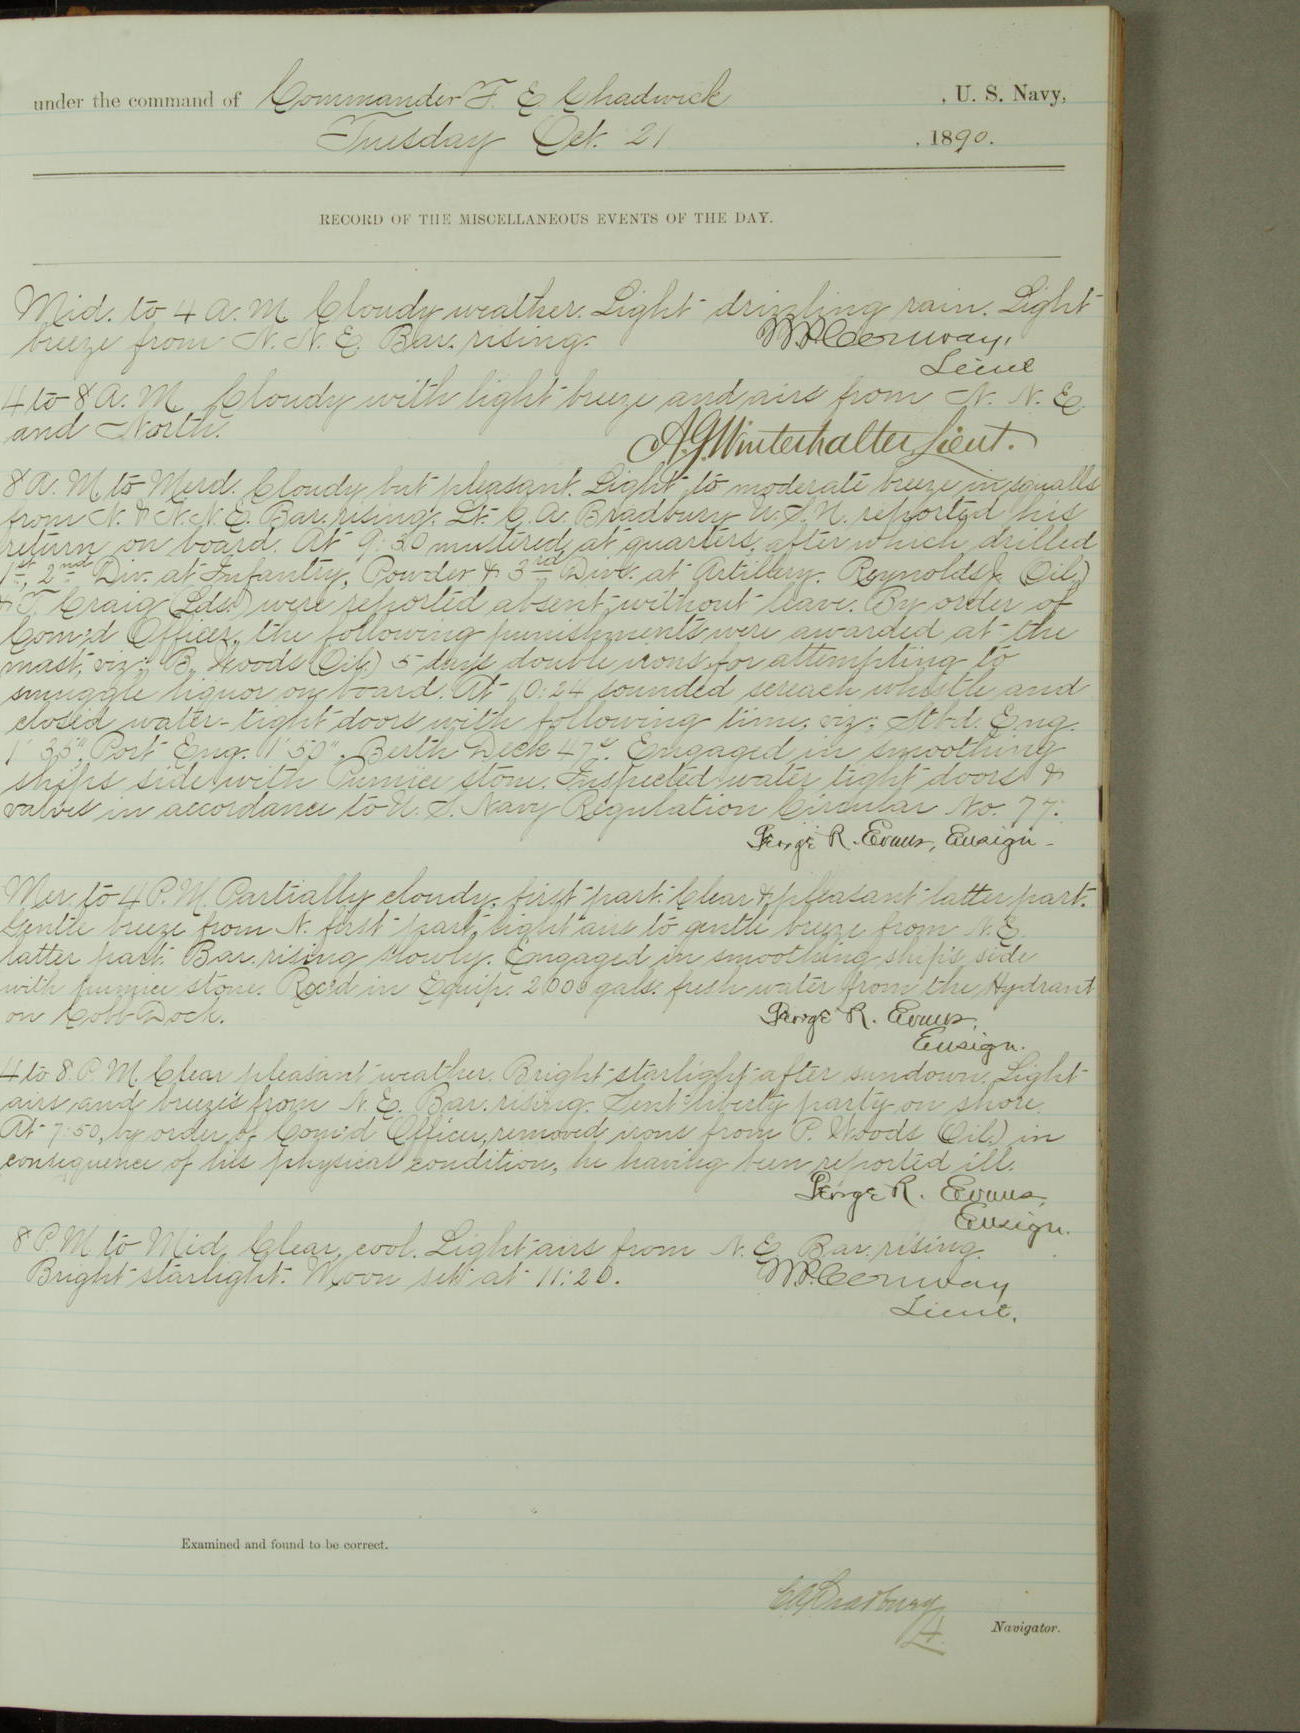 under the command of Commander F. E. Chadwick, U. S. Navy,
Tuesday Oct. 21, 1890.
RECORD OF THE MISCELLANEOUS EVENTS OF THE DAY.
Mid. to 4 A. M. Cloudy weather. Light drizzling rain. Light
breeze from N. N. E. Bar. rising.
W.P. Conway,
Lieut
4 to 8 A. M. Cloudy with light breeze and airs from N. N. E.
and North.
A.G. Winterhalter, Lieut.
8 A. M. to Merd. Cloudy but pleasant. Light to moderate breeze in squalls
from N. & N.N.E. Bar. rising. Lt. C. A. Bradbury U.S.N. reported his
return on board. At 9:30 mustered at quarters, after which drilled
1st, 2nd Div. at Infantry, Powder & 3rd Divs. at Artillery. Reynolds (Oil.)
& T. Craig (Lds.) were reported absent without leave. By order of
Com'd Officer, the following punishments were awarded at the
mast, viz: Woods (Oil.) 5 days double irons for attempting to
smuggle liquor on board. At 10:24 sounded screach whistle and
closed water-tight doors with following time, viz: Stbd. Eng.
1' 35", Port Eng. 1' 50", Berth Deck 47". Engaged in smoothing
ships side with Pumice stone. Inspected water tight doors &
valves in accordance to U. S. Navy Regulation Circular No. 77.
George R. Evans, Ensign.
Mer. to 4 P. M. Partially cloudy, first part. Clear & pleasant latter part.
Gentle breeze from N. first part, light airs to gentle breeze from N.E.
latter part. Bar. rising slowly. Engaged in smoothing ship's side
with pumice stone. Rec'd in Equip. 2000 gals. fresh water from the Hydrant
on Cobb Dock.
George R. Evans,
Ensign.
4 to 8 P. M. Clear pleasant weather. Bright starlight after sundown. Light
airs and breezes from N. E. Bar. rising. Sent liberty party on shore.
At 7:50, by order of Com'd Officer, removed irons from P. Woods (Oil.) in
consequence of his physical condition, he having been reported ill.
George R. Evans,
Ensign.
8 P M to Mid. Clear, cool. Light airs from N. E. Bar. rising.
Bright starlight. Moon set at 11:20.
W.P. Conway
Lieut.
Examined and found to be correct.
C A Bradbury
Lt.
Navigator.